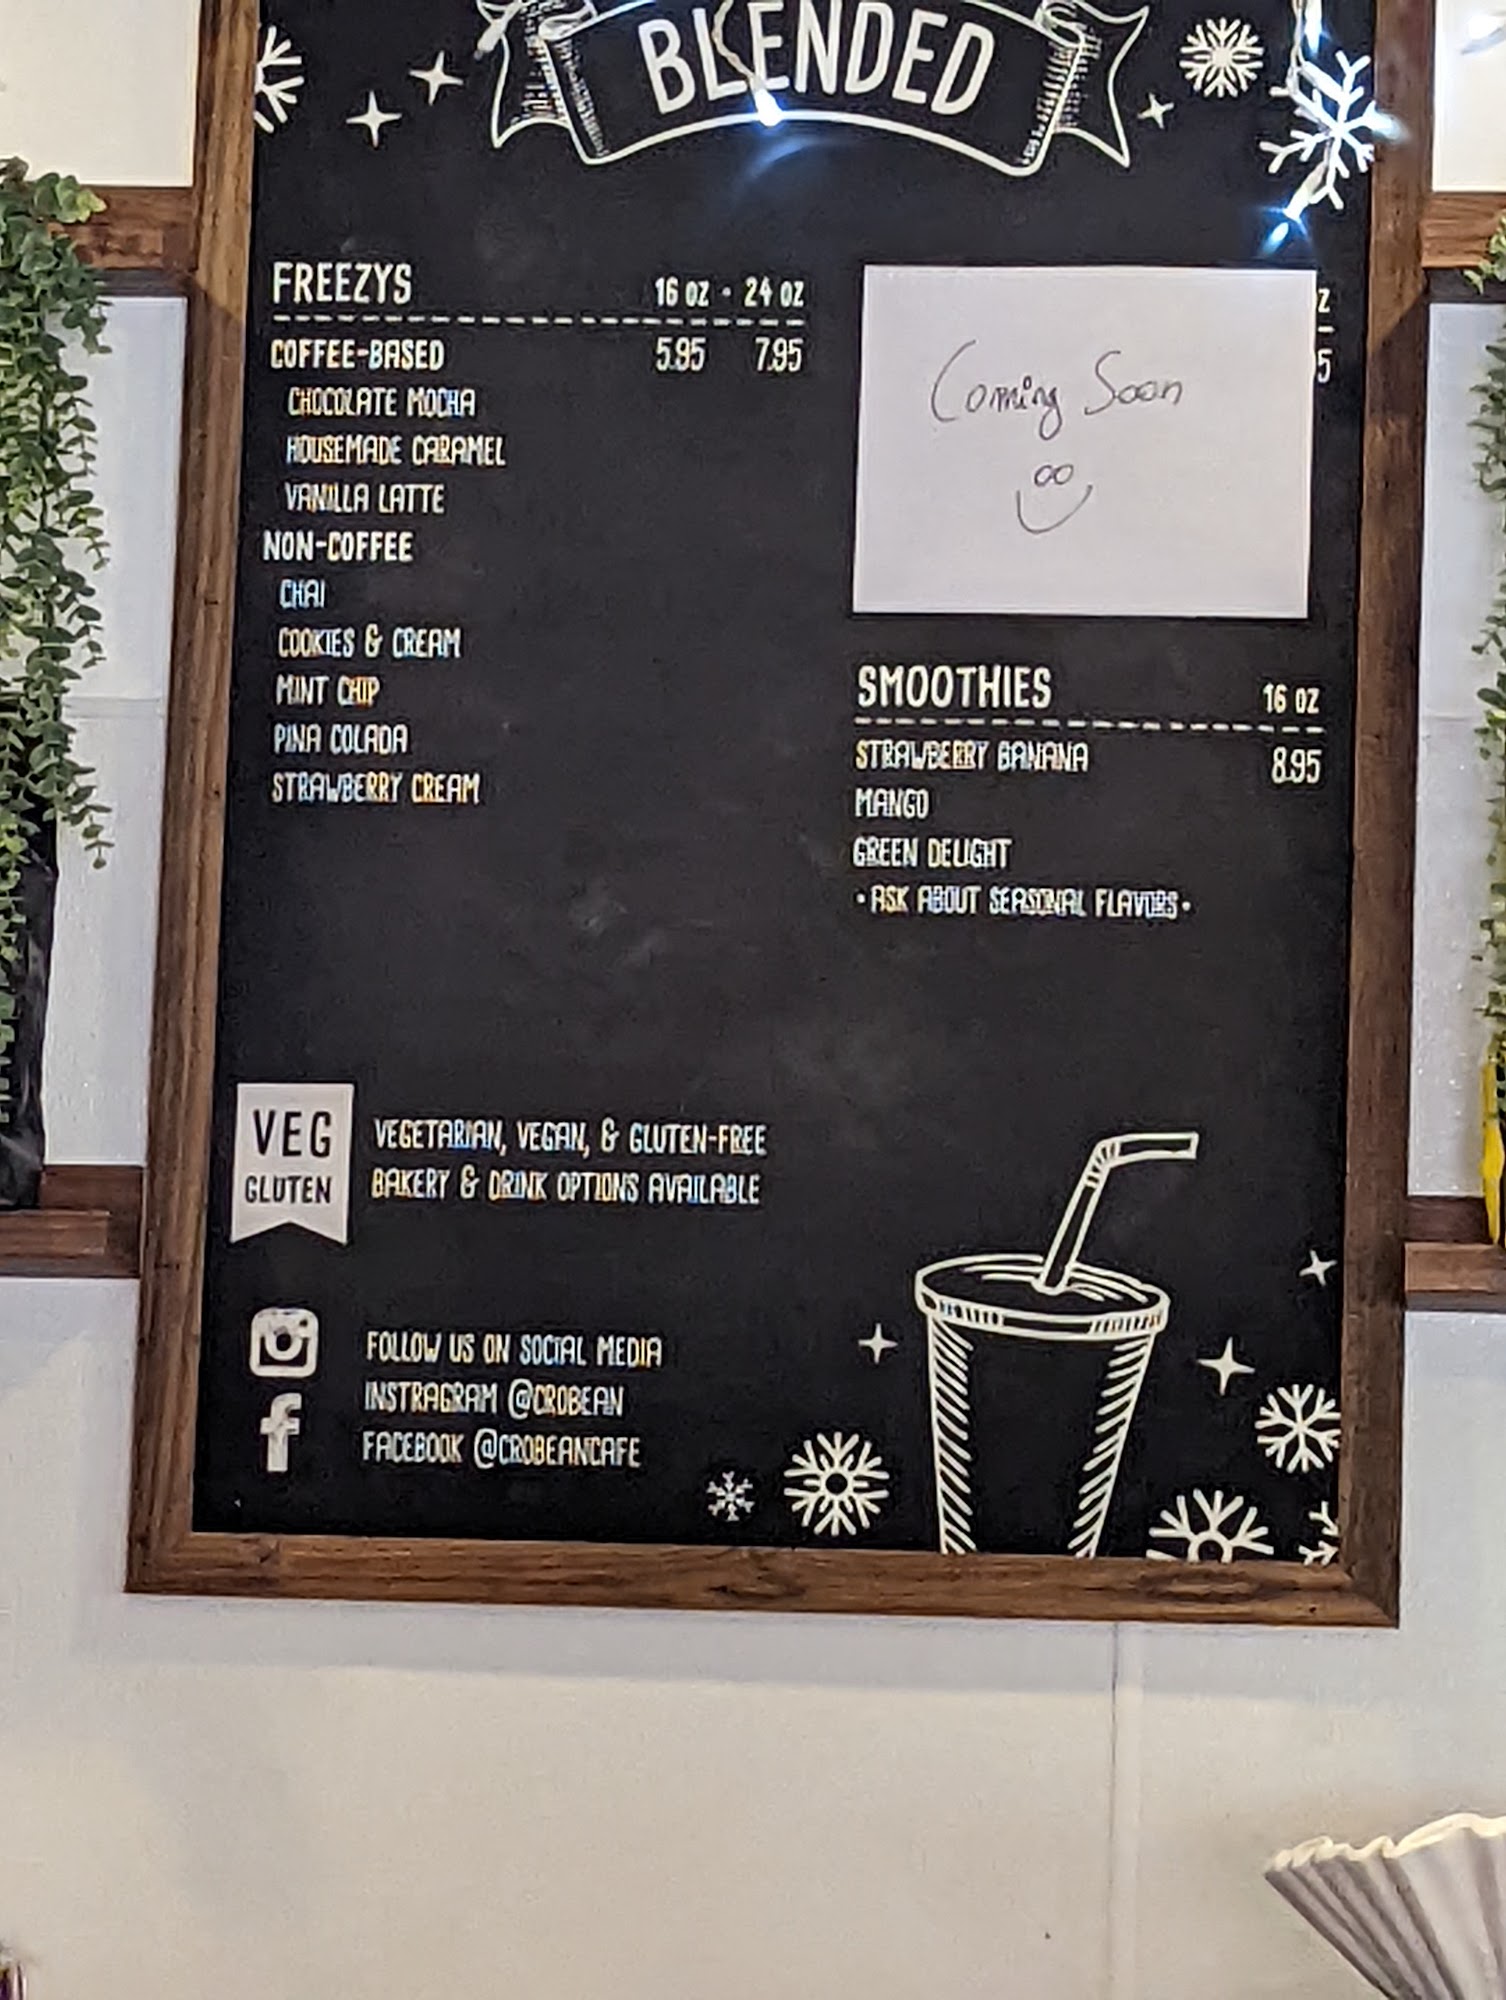 BLENDED
FREEZYS 16 OZ • 24 OZ
COFFEE-BASED 5.95 7.95
CHOCOLATE MOCHA
HOUSEMADE CARAMEL
VANILLA LATTE
NON-COFFEE
CHAI
COOKIES & CREAM
MINT CHIP
PINA COLADA
STRAWBERRY CREAM
Coming Soon
SMOOTHIES 16 OZ
STRAWBERRY BANANA 8.95
MANGO
GREEN DELIGHT
• ASK ABOUT SEASONAL FLAVORS •
VEG
GLUTEN
VEGETARIAN, VEGAN, & GLUTEN-FREE
BAKERY & DRINK OPTIONS AVAILABLE
FOLLOW US ON SOCIAL MEDIA
INSTRAGRAM @CROBEAN
FACEBOOK @CROBEANCAFE